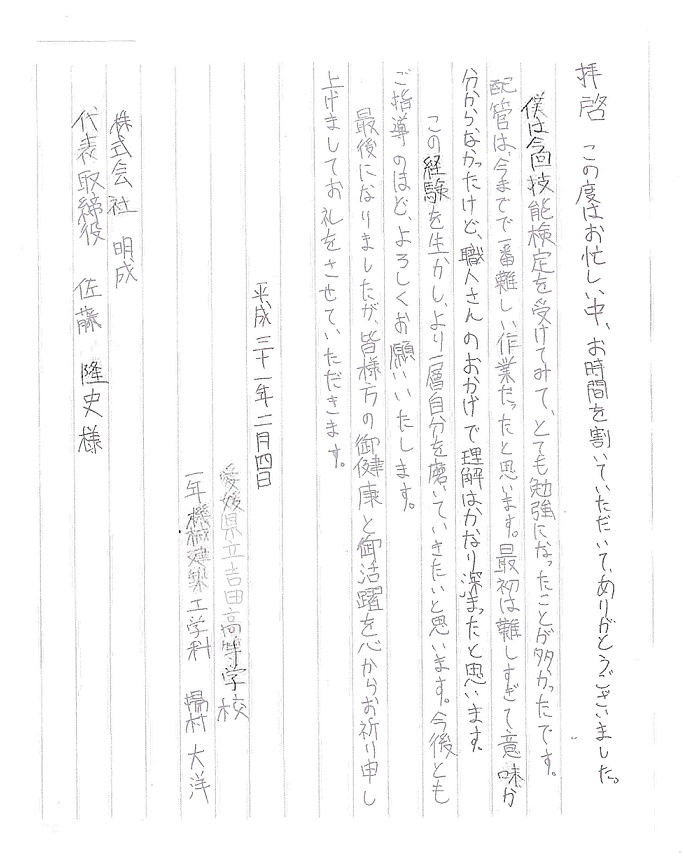 拝啓 この度はお忙しい中、お時間を割いていただいて、ありがとうございました。
僕は今回技能検定を受けてみて、とても勉強になったことが多かったです。
配管は、今までで一番難しい作業だったと思います。最初は難しすぎて意味が
分からなかったけど、職人さんのおかげで理解はかなり深まったと思います。
この経験を生かし、より一層自分を磨いていきたいと思います。今後とも
ご指導のほど、よろしくお願いいたします。
最後になりましたが、皆様方の御健康と御活躍を心からお祈り申し
上げましてお礼をさせていただきます。
平成三十一年二月四日
愛媛県立吉田高等学校
一年機械建築工学科 村 大洋
株式会社 明成
代表取締役 佐藤 隆史様